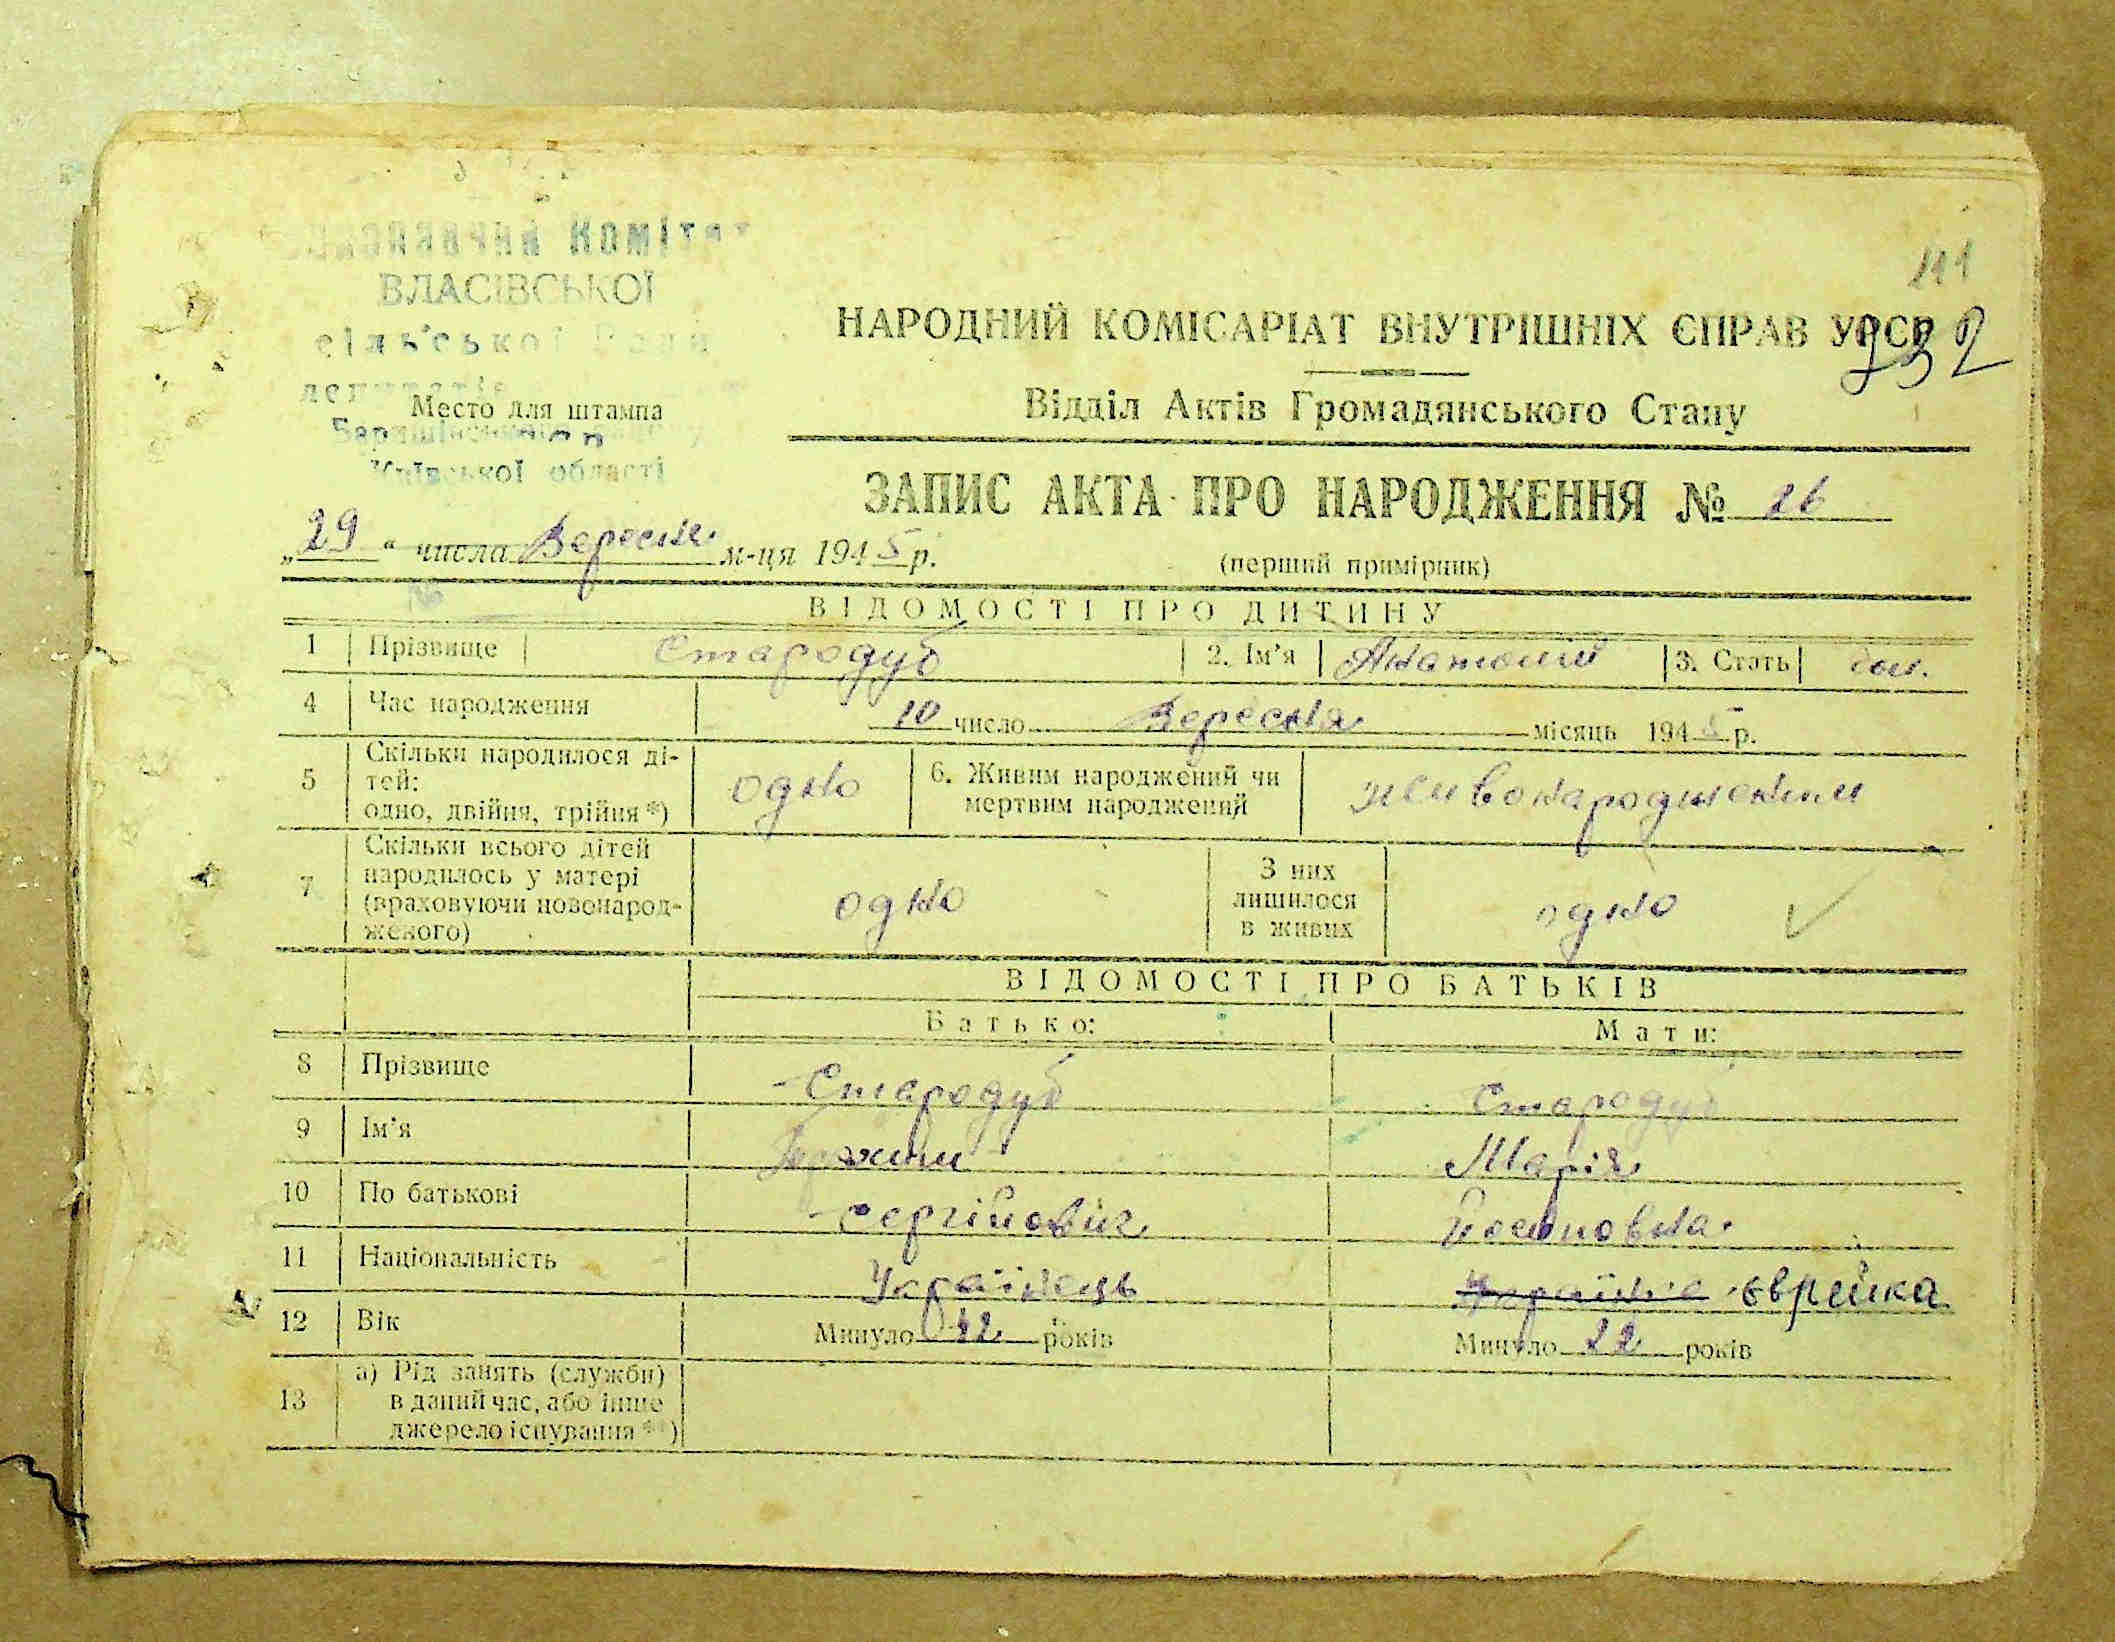 Виконавчий Комітет
ВЛАСІВСЬКОЇ
сільської Ради
депутатів
Место для штампа
Київської області
111
232
НАРОДНИЙ КОМІСАРІАТ ВНУТРІШНІХ ЄПРАВ УРСР
Відділ Актів Громадянського Стану
ЗАПИС АКТА ПРО НАРОДЖЕННЯ № 26
„29“ числа Вересня м-ця 1945 р.
(перший примірник)
ВІДОМОСТІ ПРО ДИТИНУ
1 Прізвище Стародуб 2. Ім'я Анатолий 3. Стать чол.
4 Час народження 10 число Вересня місяць 1945 р.
5 Скільки народилося ді-
тей:
одно, двійня, трійня *) одно 6. Живим народжений чи
мертвим народжений живонародженим
7 Скільки всього дітей
народилось у матері
(враховуючи новонарод-
женого) одно З них
лишилося
в живих одно
ВІДОМОСТІ ПРО БАТЬКІВ
Батько: Мати:
8 Прізвище Стародуб Стародуб
9 Ім'я Марія
10 По батькові Сергійович Йосиповна
11 Національність Українець Українка єврейка
12 Вік Минуло років Минуло 22 років
13 а) Рід занять (служби)
в даний час, або інше
джерело існування **)